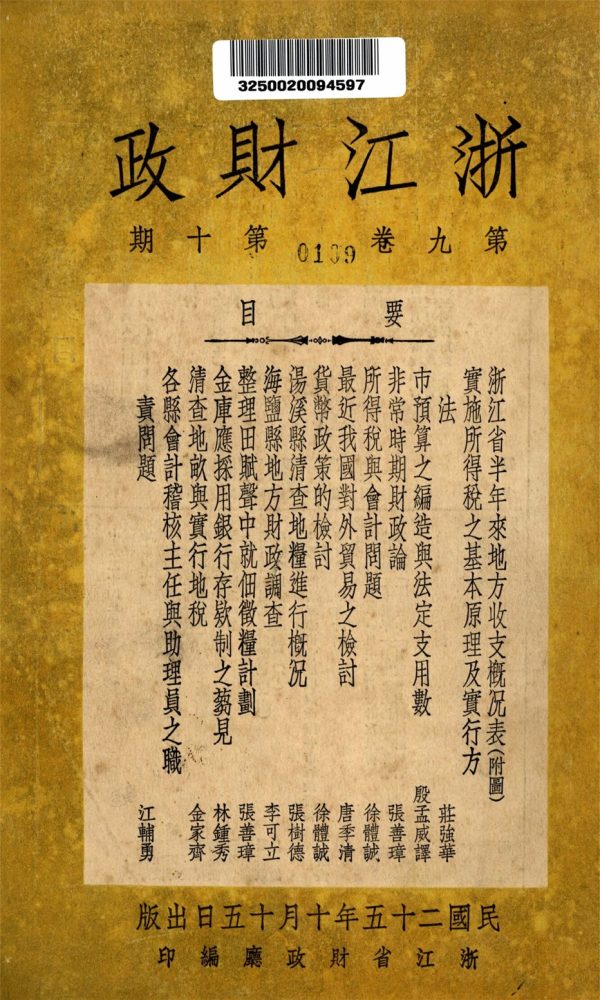 3250020094597
浙江財政
第九卷 第十期
要目
浙江省半年來地方收支概況表(附圖)
實施所得稅之基本原理及實行方
法 莊強華
市預算之編造與法定支用數 殷孟威譯
非常時期財政論 張善璋
所得稅與會計問題 徐體誠
最近我國對外貿易之檢討 唐季清
貨幣政策的檢討 徐體誠
湯溪縣清查地糧進行概況 張樹德
海鹽縣地方財政調查 李可立
整理田賦聲中就佃徵糧計劃 張善璋
金庫應採用銀行存欵制之蒭見 林鍾秀
清查地畝與實行地稅 金家齊
各縣會計稽核主任與助理員之職
責問題 江輔勇
民國二十五年十月十五日出版
浙江省財政廳編印